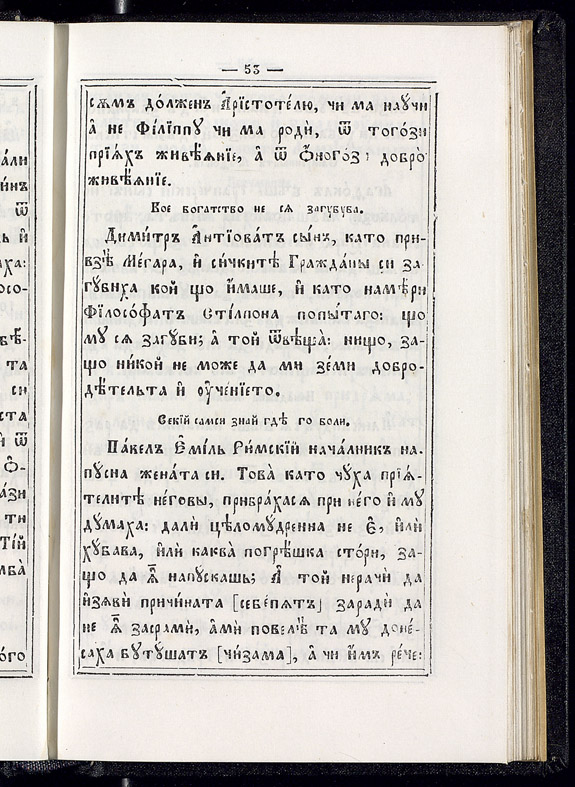 — 53 —
сѧмъ до́лженъ А҆рїстоте́лю, чи ма наꙋчи
а҆ не Фїлі́ппꙋ чи ма роди̂, ѿ того́зи
прїѧ́хъ живѣѧ́нїе, а҆ ѿ Ѻ҆ного́зі добро̀
живѣѧ́нїе.
Кое богатство не сѧ загꙋбꙋва.
Дими́тръ А҆нтїова́тъ сы́нъ, като при-
взѣ̀ Ме́гара, и҆ си́чкитѣ Гражда́ны си за-
гꙋ́биха кой що и҆́маше, и҆ като намѣ́ри
Фїлосо́фатъ Сті́лпона попы́таго: що
мꙋ сѧ загꙋби; а҆ той ѿвѣща̀: нищо, за-
що ни́кой не може да ми зе́ми добро-
дѣ́тельта и҆ ᲂу҆че́нїето.
Секїй самси знай гдѣ го боли.
Па́велъ Є҆мі́ль Ри́мскїй нача́лникъ на-
пꙋсна жена́та си. Това̀ като чꙋха прїѧ́-
телитѣ не́говы, прибра́хасѧ при не́го и҆ мꙋ
дꙋ́маха: дали̂ цѣломꙋ́дренна не Є҆̂, и҆лѝ
хꙋ́бава, и҆лѝ каква̀ погрѣ́шка сто́ри, за-
що да ѭ̂ напꙋ́скашь; А҆̂ той нерачѝ да
и҆зѧви̂ причи́ната [себе́пѧтъ] заради̂ да
не ѭ̂ засрамѝ, а҆мѝ повелѣ̀ та мꙋ доне́-
саха бꙋтꙋ́шатъ [чи́зама], а҆ чи и҆̂мъ ре́че: